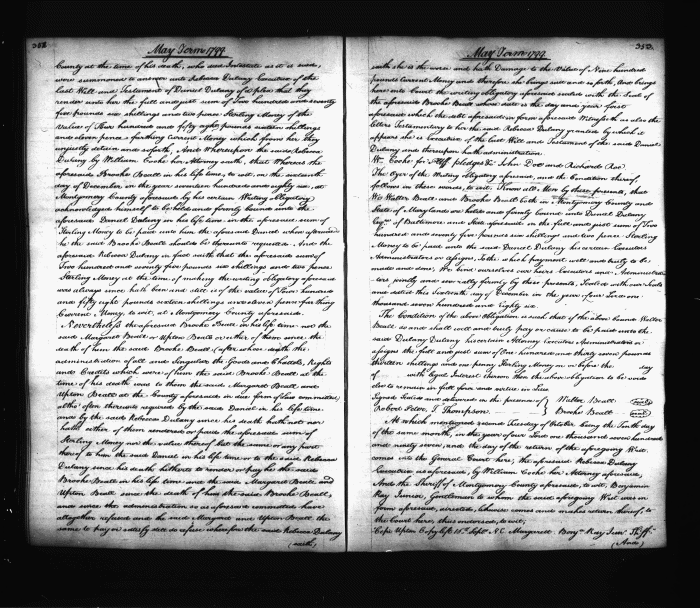 352
May Term 1799
County at the time of his death, who died Intestate as it is said,
were summoned to answer unto Rebecca Dulany Executrix of the
Last Will and Testament of Daniel Dulany of a plea that they
render unto her the full and just sum of Two hundred and seventy
five pounds six shillings and two pence Sterling Money of the
Value of Four hundred and fifty eight pounds sixteen shillings
and eleven pence farthing Current Money which from her they
unjustly detain and so forth, And Whereupon the said Rebecca
Dulany by William Cooke her Attorney saith, that Whereas the
aforesaid Brooke Beall in his life time, to wit, on the sixteenth
day of December in the year seventeen hundred and eighty six, at
Montgomery County aforesaid by his certain Writing Obligatory
acknowledged himself to be held and firmly bound unto the
aforesaid Daniel Dulany in his life time in the aforesaid sum of
Sterling Money to be paid unto him the aforesaid Daniel when afterwards
he the said Brooke Beall should be thereunto requested. And the
aforesaid Rebecca Dulany in fact saith that the aforesaid sum of
Two hundred and seventy five pounds six shillings and two pence
Sterling Money at the time of making the writing Obligatory aforesaid
was always since hath been and still is of the value of Four hundred
and fifty eight pounds sixteen shillings and eleven pence farthing
Current Money, to wit, at Montgomery County aforesaid.
Nevertheless the aforesaid Brooke Beall in his life time nor the
said Margaret Beall or Upton Beall or either of them since the
death of him the said Brooke Beall (after whose death the
administration of all and Singular the Goods and Chattels, Rights
and Credits which were of him the said Brooke Beall at the
time of his death was to them the said Margaret Beall and
Upton Beall at the County aforesaid in due form of law committed)
altho' often thereunto required by the said Daniel in his life time
and by the said Rebecca Dulany since his death hath not nor
hath either of them rendered or paid the aforesaid sum of
Sterling Money nor the value thereof but the same or any part
thereof to him the said Daniel in his life time or to the said Rebecca
Dulany since his death hitherto to render or pay he the said
Brooke Beall in his life time and the said Margaret Beall and
Upton Beall since the death of him the said Brooke Beall,
and since the administration so as aforesaid committed have
altogether refused and the said Margaret and Upton Beall the
same to pay or satisfy still do refuse wherefore the said Rebecca Dulany
(saith)
353
May Term 1799
saith she is the worse and hath Damage to the Value of Nine hundred
pounds Current Money and therefore she brings suit and so forth, And brings
here into Court the writing obligatory aforesaid sealed with the Seal of
the aforesaid Brooke Beall whose date is the day and year first
aforesaid which the debt aforesaid in form aforesaid Witnesseth as also the
letters Testamentary to her the said Rebecca Dulany granted by which it
appears she is Executrix of the Last Will and Testament of the said Daniel
Dulany and thereupon hath administration.
Wm. Cooke for Plff pledges &c John Doe and Richard Roe
The Oyer of the Writing Obligatory aforesaid, and the Condition thereof,
follows in these words, to wit, Know all Men by these presents, that
We Walter Beall and Brooke Beall both in Montgomery County and
State of Maryland are holden and firmly bound unto Daniel Dulany
Esqr. of Baltimore and State aforesaid in the full and just sum of Two
hundred and seventy five pounds six shillings and two pence Sterling
Money to be paid unto the said Daniel Dulany his certain Executors
Administrators or Assigns, To the which payment well and truly to be
made and done, We bind ourselves our heirs Executors and Administra-
tors jointly and severally firmly by these presents, Sealed with our Seals
and dated this sixteenth day of December in the year of our Lord one
thousand seven hundred and Eighty six.
The Condition of the above Obligation is such that if the above bound Walter
Beall &c. and shall well and truly pay or cause to be paid unto the
said Dulany Dulany his certain Attorney Executors Administrators or
assigns the full and just sum of One hundred and thirty seven pounds
thirteen shillings and one penny Sterling Money on or before the day
of with legal Interest thereon then the above obligation to be void
else to remain in full force and virtue in Law.
Signed Sealed and delivered in the presence of Walter Beall (seal)
Robert Peter, J. Thompson. Brooke Beall (seal)
At which mentioned second Tuesday of October being the Tenth day
of the same month, in the year of our Lord one thousand seven hundred
and ninety seven, and the day of the return of the aforegoing Writ,
comes into the General Court here, the aforesaid Rebecca Dulany
Executrix as aforesaid, by William Cooke her Attorney aforesaid,
And the Sheriff of Montgomery County aforesaid, to wit, Benjamin
Ray Junior, Gentleman to whom the said aforegoing Writ was in
form aforesaid, directed, likewise comes and makes return thereof, to
the Court here, thus endorsed, to wit,
Cepi Upton Copy left 18th. Septr. N.C. Margarett. Benjn. Ray Junr. Shff.
(And)